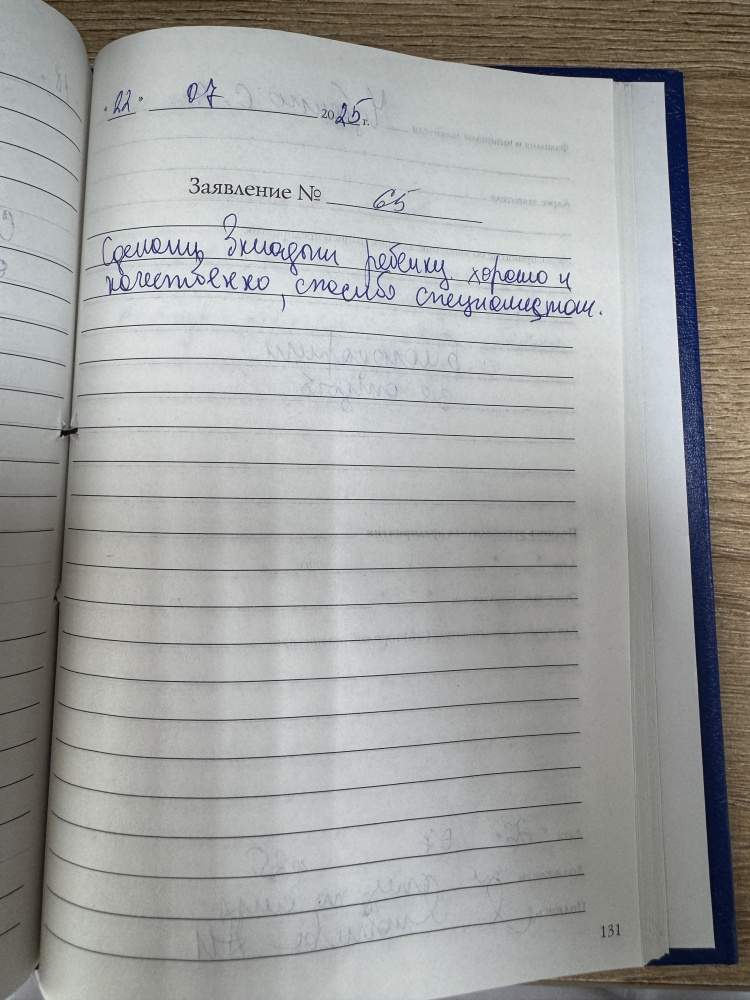 "22" 07 2025 г.
Заявление № 65
Сделали вкладыши ребенку хорошо и
качественно, спасибо специалистам.
131